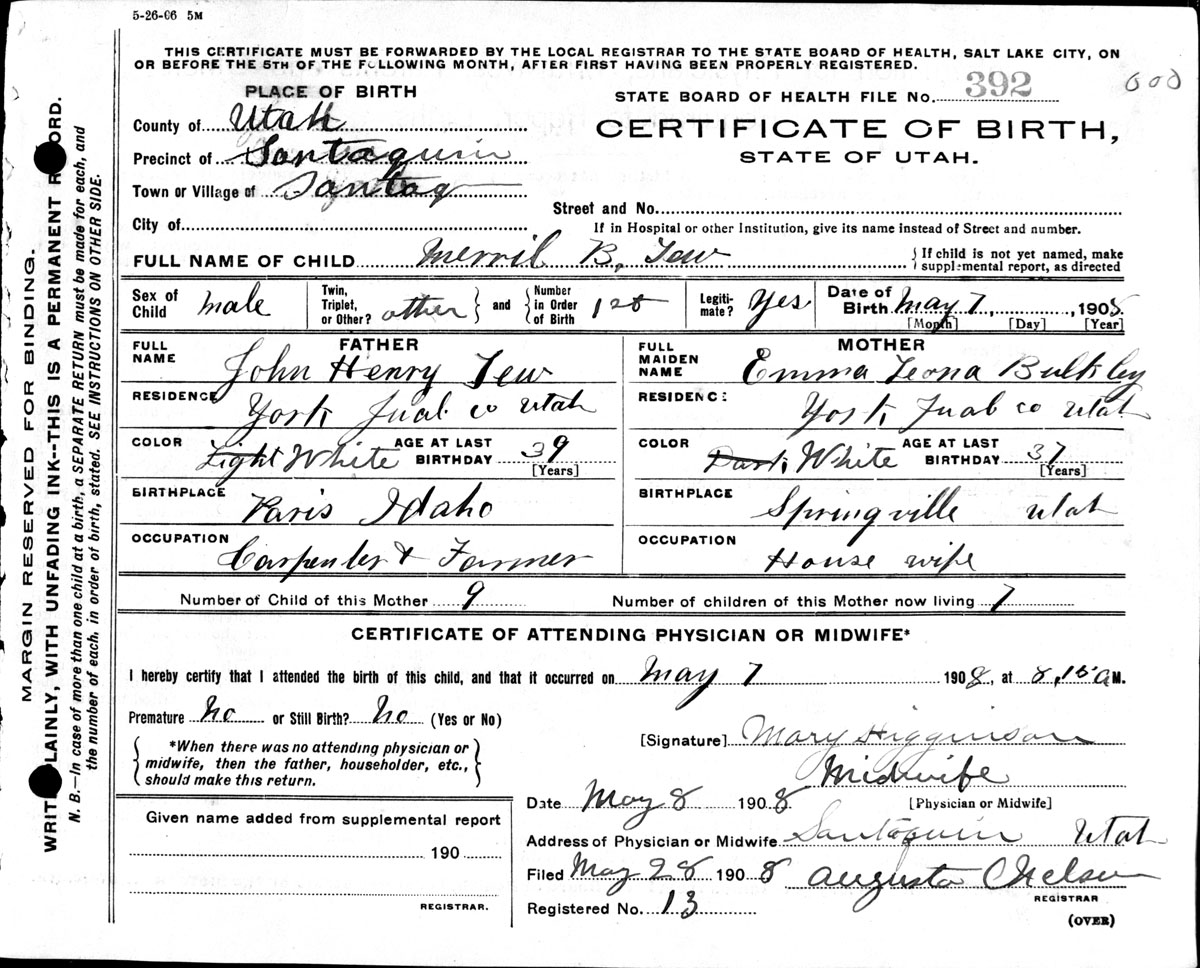 5-26-06 5M
THIS CERTIFICATE MUST BE FORWARDED BY THE LOCAL REGISTRAR TO THE STATE BOARD OF HEALTH, SALT LAKE CITY, ON
OR BEFORE THE 5TH OF THE FOLLOWING MONTH, AFTER FIRST HAVING BEEN PROPERLY REGISTERED.
PLACE OF BIRTH
STATE BOARD OF HEALTH FILE No. 392
000
County of Utah
CERTIFICATE OF BIRTH,
STATE OF UTAH.
Precinct of Santaquin
Town or Village of Santaq
Street and No.
City of
If in Hospital or other Institution, give its name instead of Street and number.
FULL NAME OF CHILD Merril B. Tew { If child is not yet named, make
supplemental report, as directed
Sex of Child male
Twin, Triplet, or Other? other } and { Number in Order of Birth 1st
Legitimate? Yes
Date of Birth May 7, 1908
[Month] [Day] [Year]
FATHER
FULL NAME John Henry Tew
RESIDENCE York Juab co Utah
COLOR Light White AGE AT LAST BIRTHDAY 39
[Years]
BIRTHPLACE Paris Idaho
OCCUPATION Carpenter & Farmer
MOTHER
FULL MAIDEN NAME Emma Leona Bulkley
RESIDENCE York Juab co Utah
COLOR Dark White AGE AT LAST BIRTHDAY 37
[Years]
BIRTHPLACE Springville Utah
OCCUPATION House wife
Number of Child of this Mother 9 Number of children of this Mother now living 7
CERTIFICATE OF ATTENDING PHYSICIAN OR MIDWIFE*
I hereby certify that I attended the birth of this child, and that it occurred on May 7 1908, at 8,15 a M.
Premature No or Still Birth? No (Yes or No)
{ *When there was no attending physician or
midwife, then the father, householder, etc.,
should make this return. }
[Signature] Mary Higginson
Midwife
[Physician or Midwife]
Date May 8 1908.
Given name added from supplemental report
190
REGISTRAR.
Address of Physician or Midwife Santaquin Utah
Filed May 28 1908 Augusta C Nelson
REGISTRAR
Registered No. 13
(OVER)
MARGIN RESERVED FOR BINDING.
WRITE PLAINLY, WITH UNFADING INK--THIS IS A PERMANENT RECORD.
N. B.—In case of more than one child at a birth, a SEPARATE RETURN must be made for each, and
the number of each, in order of birth, stated. SEE INSTRUCTIONS ON OTHER SIDE.